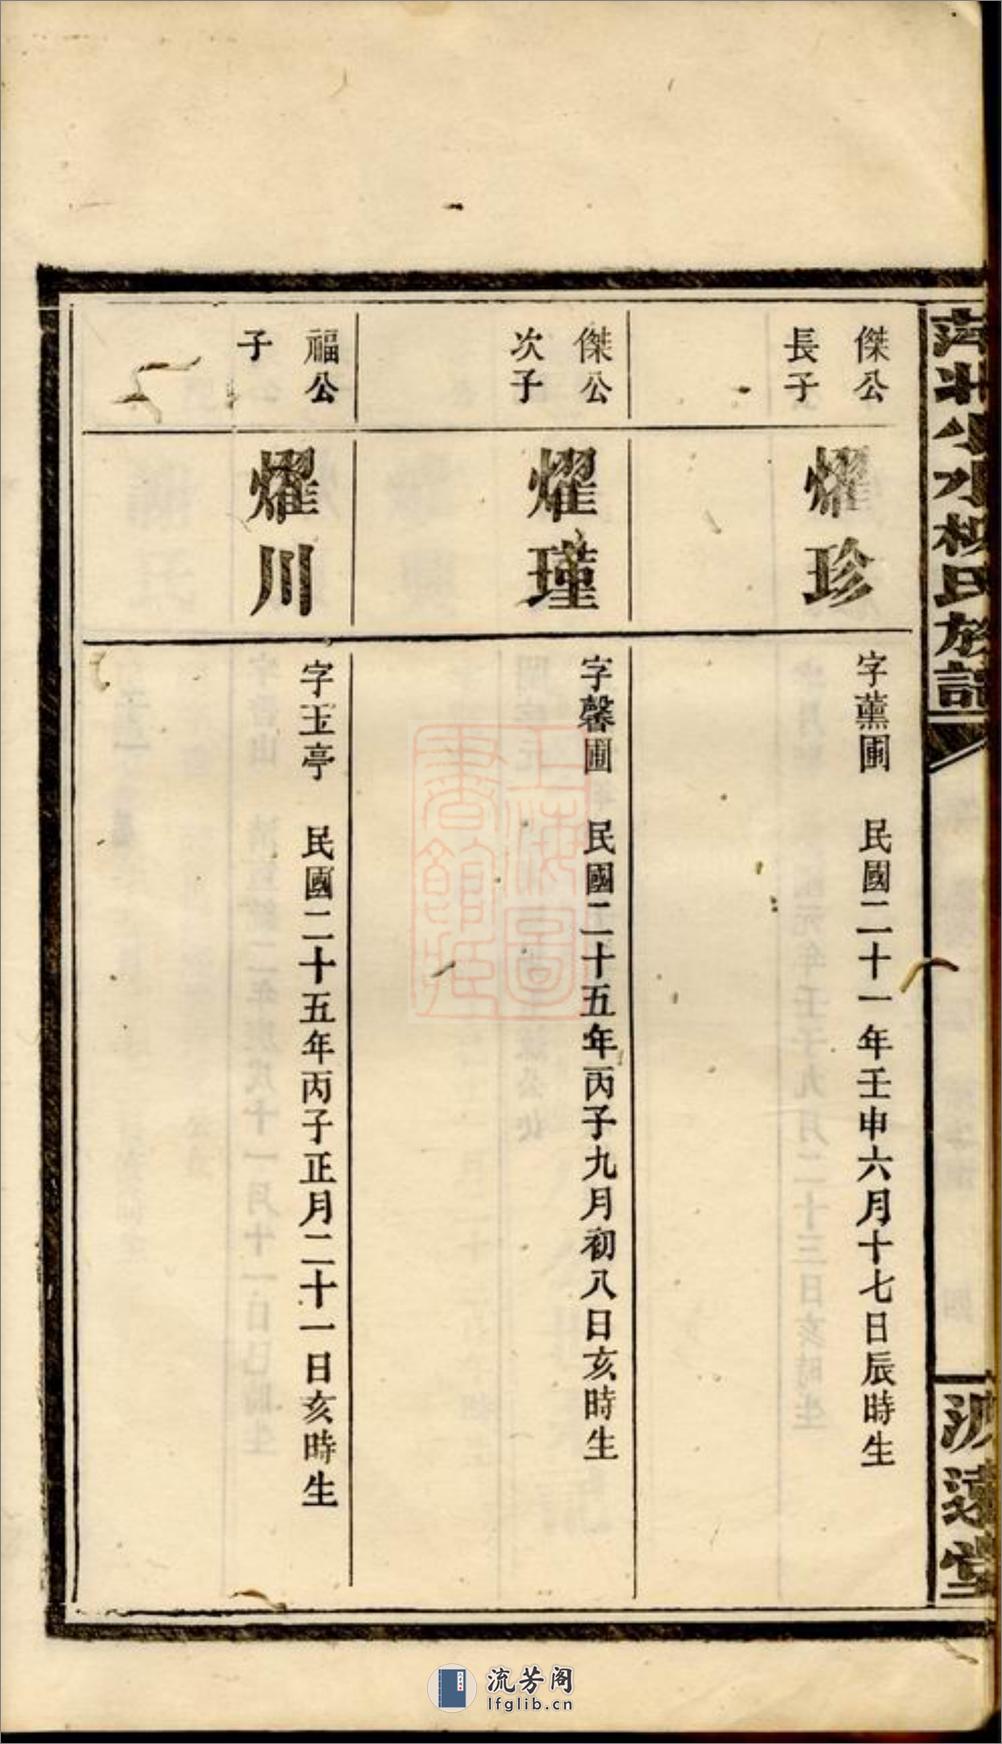 萍北小水楊氏族譜
波遠堂
傑公
長子
燿珍
字薰圃 民國二十一年壬申六月十七日辰時生
傑公
次子
燿瑾
字馨圃 民國二十五年丙子九月初八日亥時生
福公
子
燿川
字玉亭 民國二十五年丙子正月二十一日亥時生
上海圖
書館藏
流芳阁
lfglib.cn